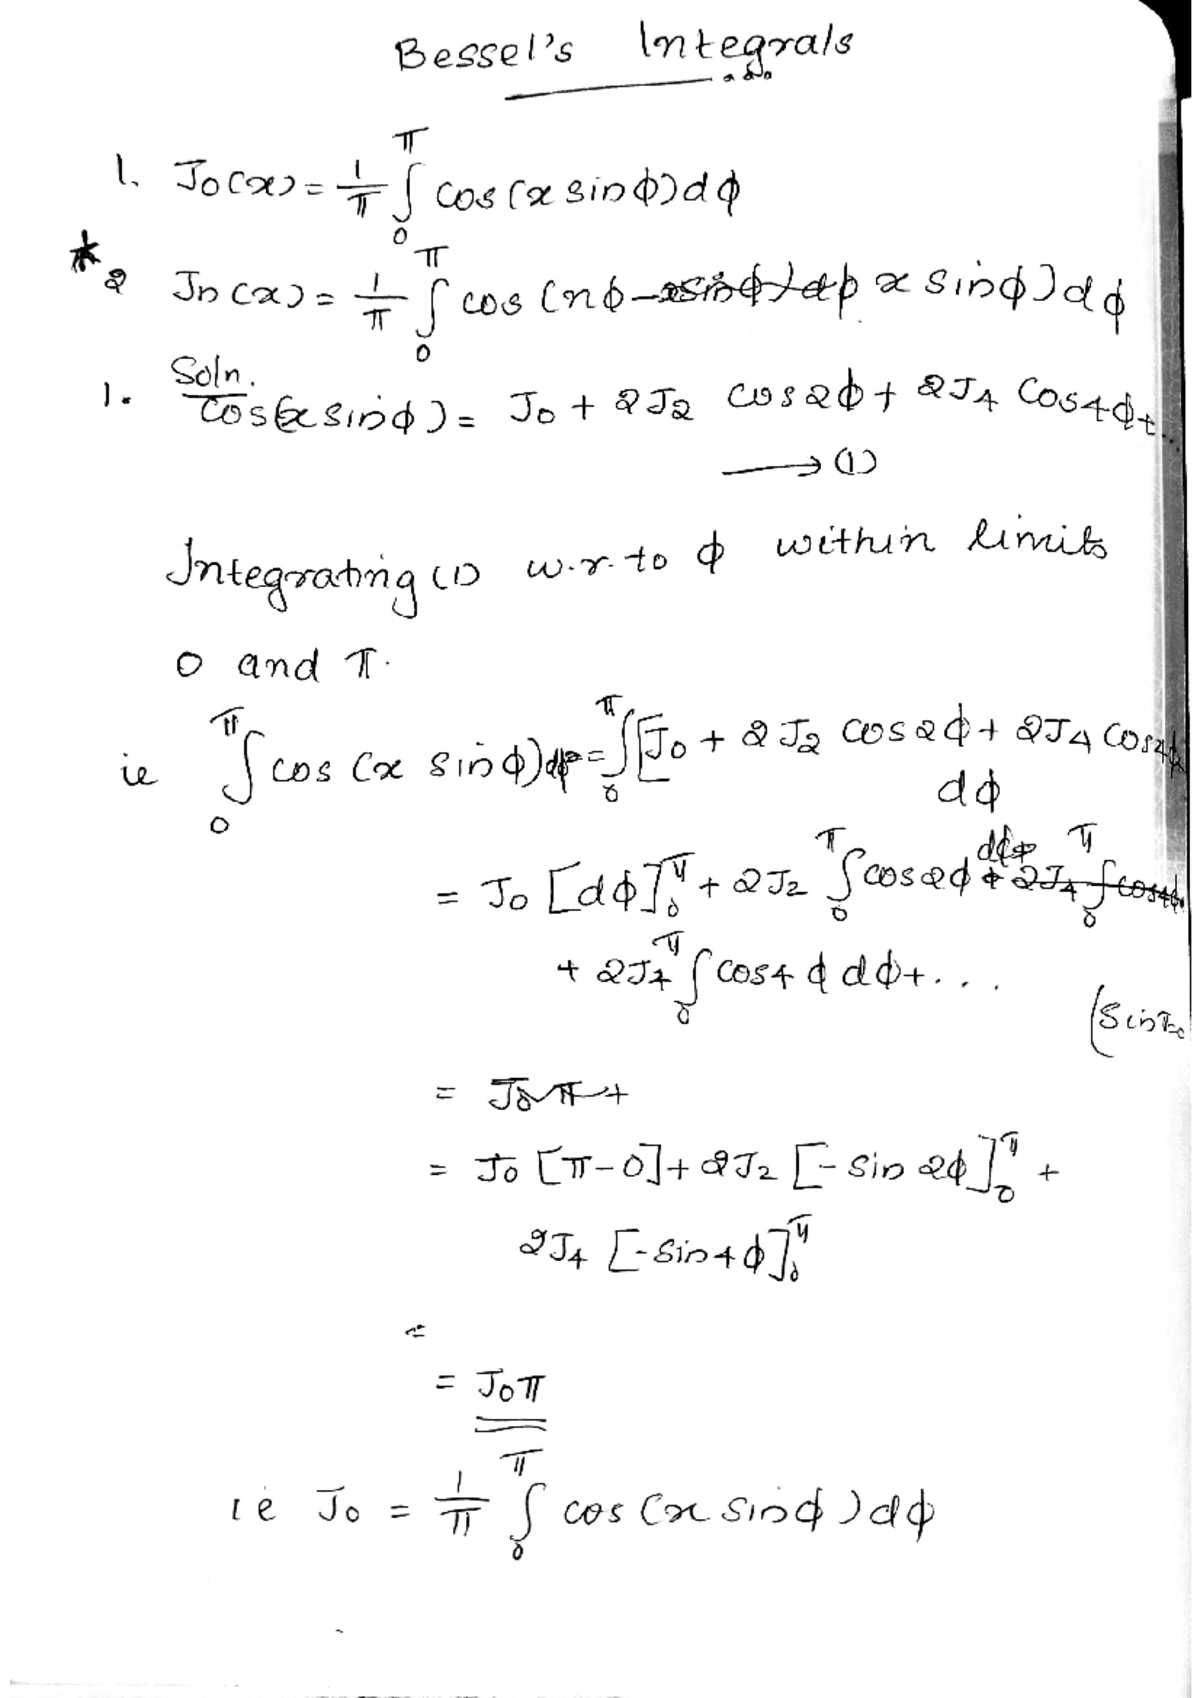 Bessel's Integrals
1. J0(x) = 1/π ∫0^π cos(x sinϕ)dϕ
* 2 Jn(x) = 1/π ∫0^π cos(nϕ - x sinϕ)dϕ x sinϕ)dϕ
Soln.
1. cos(x sinϕ) = J0 + 2J2 cos2ϕ + 2J4 cos4ϕ + ...
→ (1)
Integrating (1) w.r.to ϕ within limits
0 and π.
ie ∫0^π cos(x sinϕ)dϕ = ∫0^π [J0 + 2J2 cos2ϕ + 2J4 cos4ϕ
dϕ
= J0 [dϕ]0^π + 2J2 ∫0^π cos2ϕ dϕ + 2J4 ∫0^π cos4ϕ
+ 2J4 ∫0^π cos4ϕ dϕ + ...
(sinπ=0
= J0 π +
= J0 [π-0] + 2J2 [-sin 2ϕ]0^π +
2J4 [-sin4ϕ]0^π
=
= J0π
ie J0 = 1/π ∫0^π cos(x sinϕ)dϕ